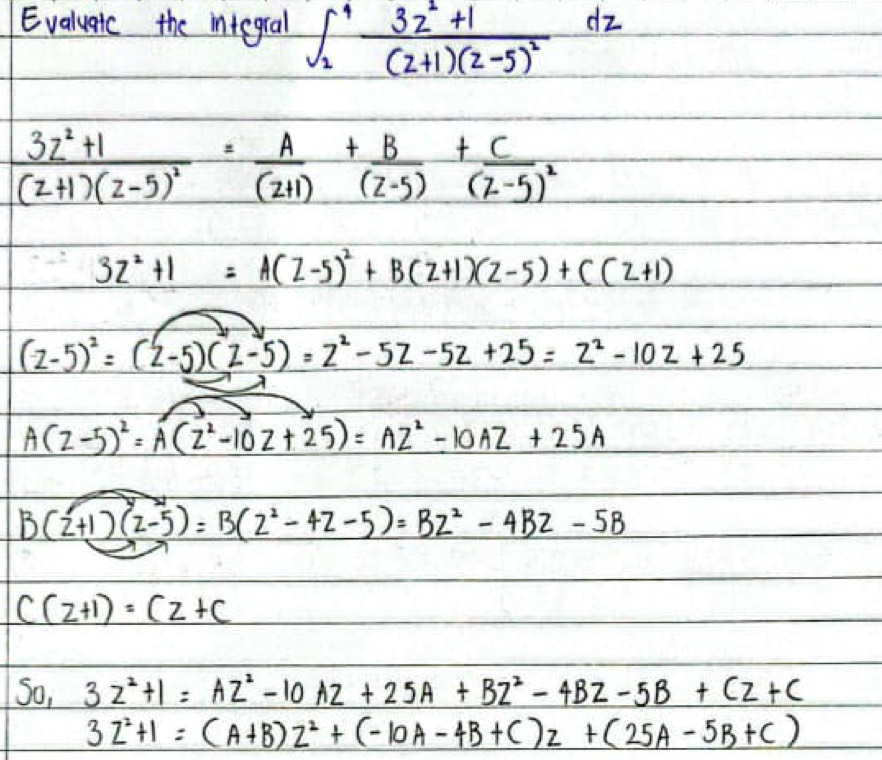 Evaluate the integral ∫₂⁴ (3z²+1)/((z+1)(z-5)²) dz
(3z²+1)/((z+1)(z-5)²) = A/(z+1) + B/(z-5) + C/(z-5)²
3z²+1 = A(z-5)² + B(z+1)(z-5) + C(z+1)
(z-5)² = (z-5)(z-5) = z² - 5z - 5z + 25 = z² - 10z + 25
A(z-5)² = A(z²-10z+25) = Az² - 10Az + 25A
B(z+1)(z-5) = B(z² - 4z - 5) = Bz² - 4Bz - 5B
C(z+1) = Cz + C
So, 3z²+1 = Az² - 10Az + 25A + Bz² - 4Bz - 5B + Cz + C
3z²+1 = (A+B)z² + (-10A - 4B + C)z + (25A - 5B + C)